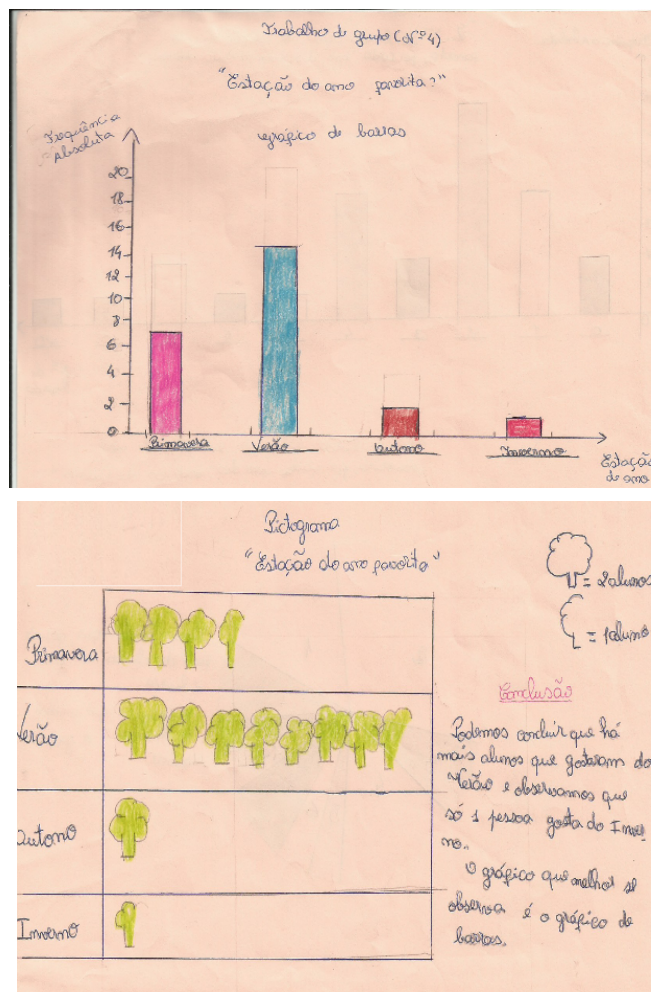 Trabalho de grupo (Nº 4)
"Estação do ano favorita?"
gráfico de barras
Frequência
Absoluta
20
18
16
14
12
10
8
6
4
2
0
Primavera
Verão
Outono
Inverno
Estação
do ano
Pictograma
"Estação do ano favorita"
= 2 alunos
= 1 aluno
Primavera
Verão
Outono
Inverno
Conclusão
Podemos concluir que há
mais alunos que gostaram do
Verão e observamos que
só 1 pessoa gosta do Inver
no.
O gráfico que melhor se
observa é o gráfico de
barras.